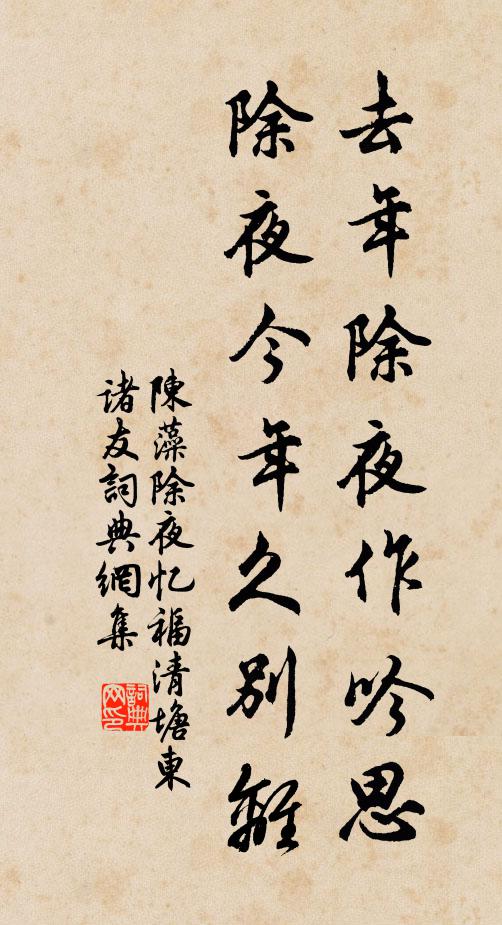 去年除夜作吟思
除夜今年久别離
陳藻除夜忆福清塘東
諸友詞典網集
詞典
网印